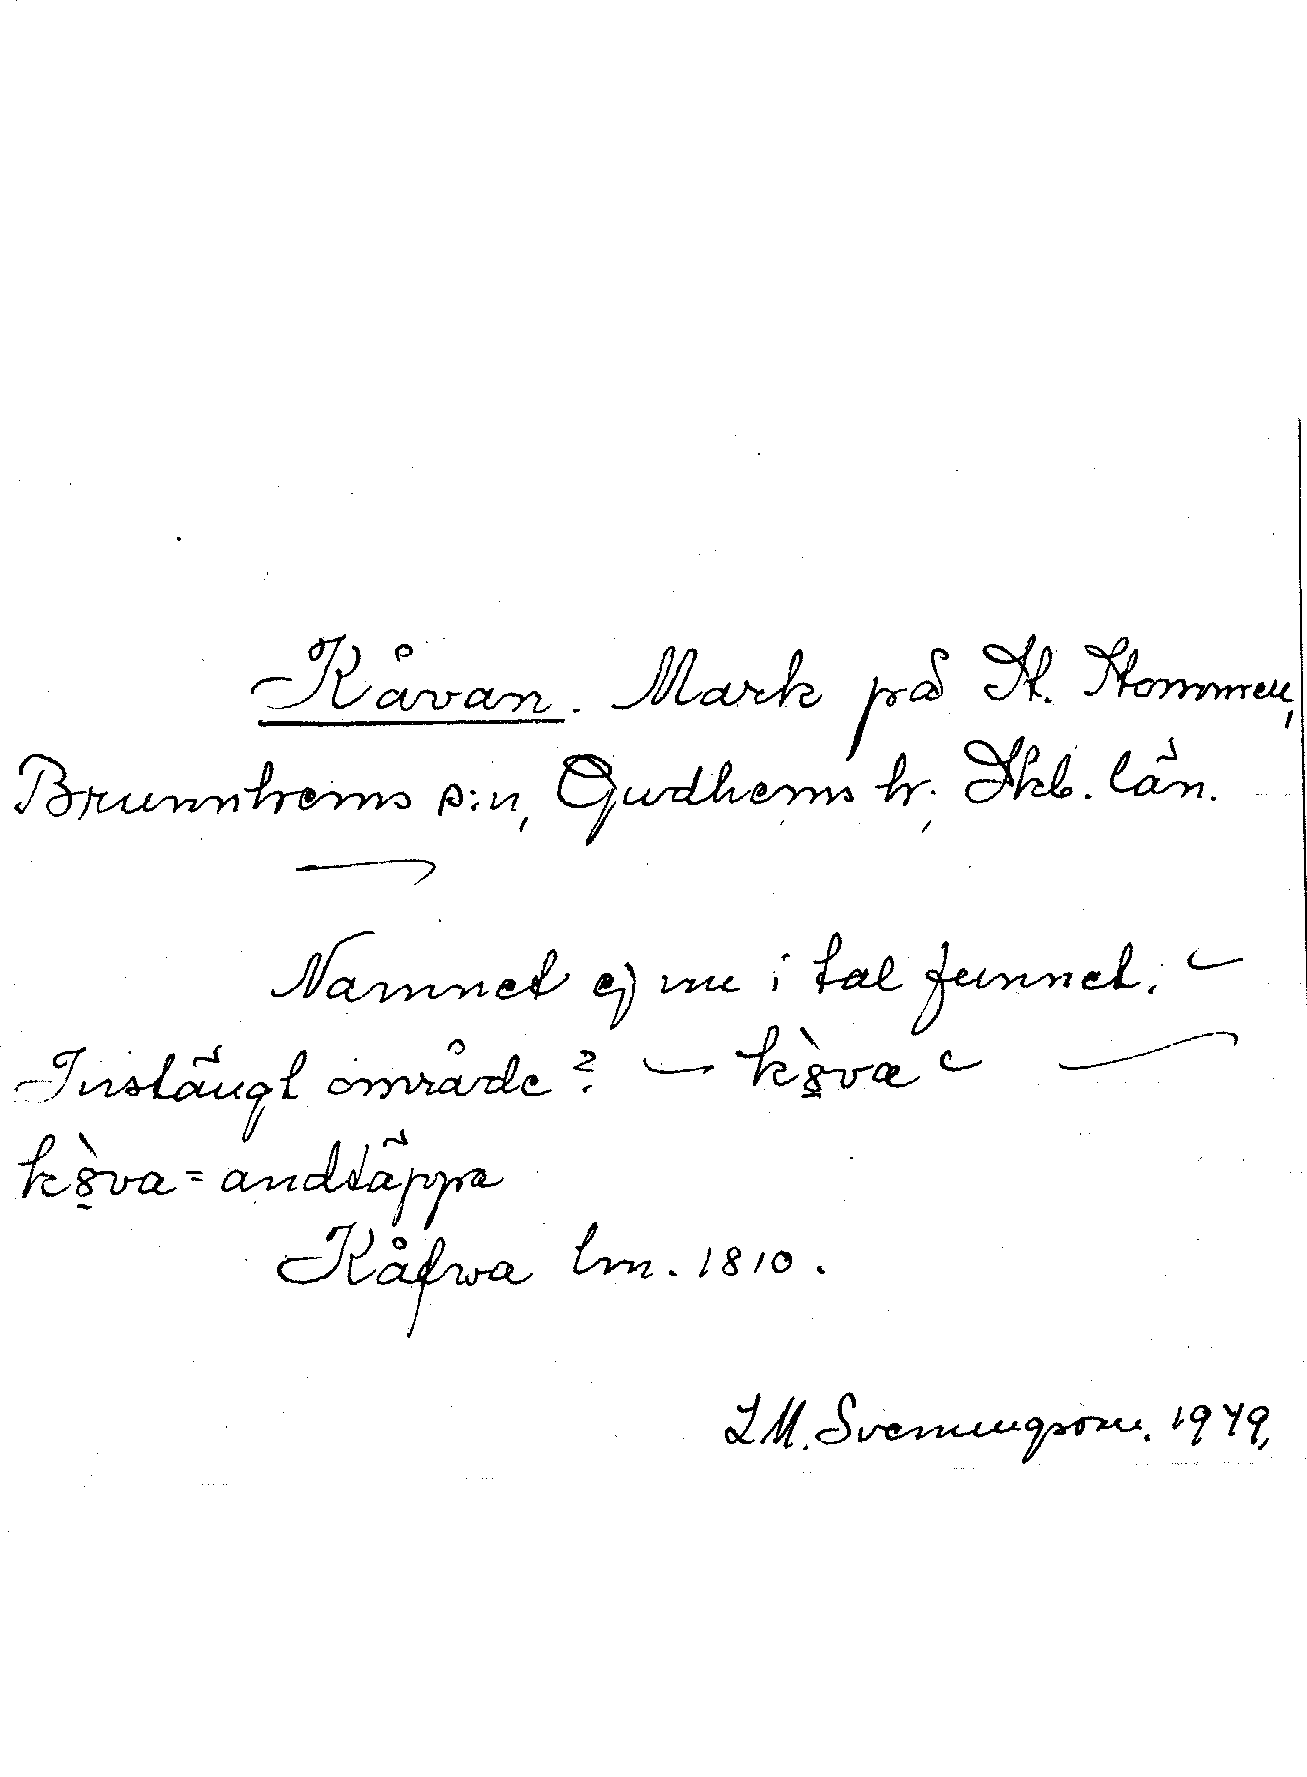 Kåvan. Mark på St. Stommen,
Brunnhems s:n, Gudhems hr. Skb. län.
Namnet ej nu i tal funnet. –
Instängt område? – kòva –
kòva = andtäppa
Kåfwa lm. 1810.
L M. Svenungsson. 1949.